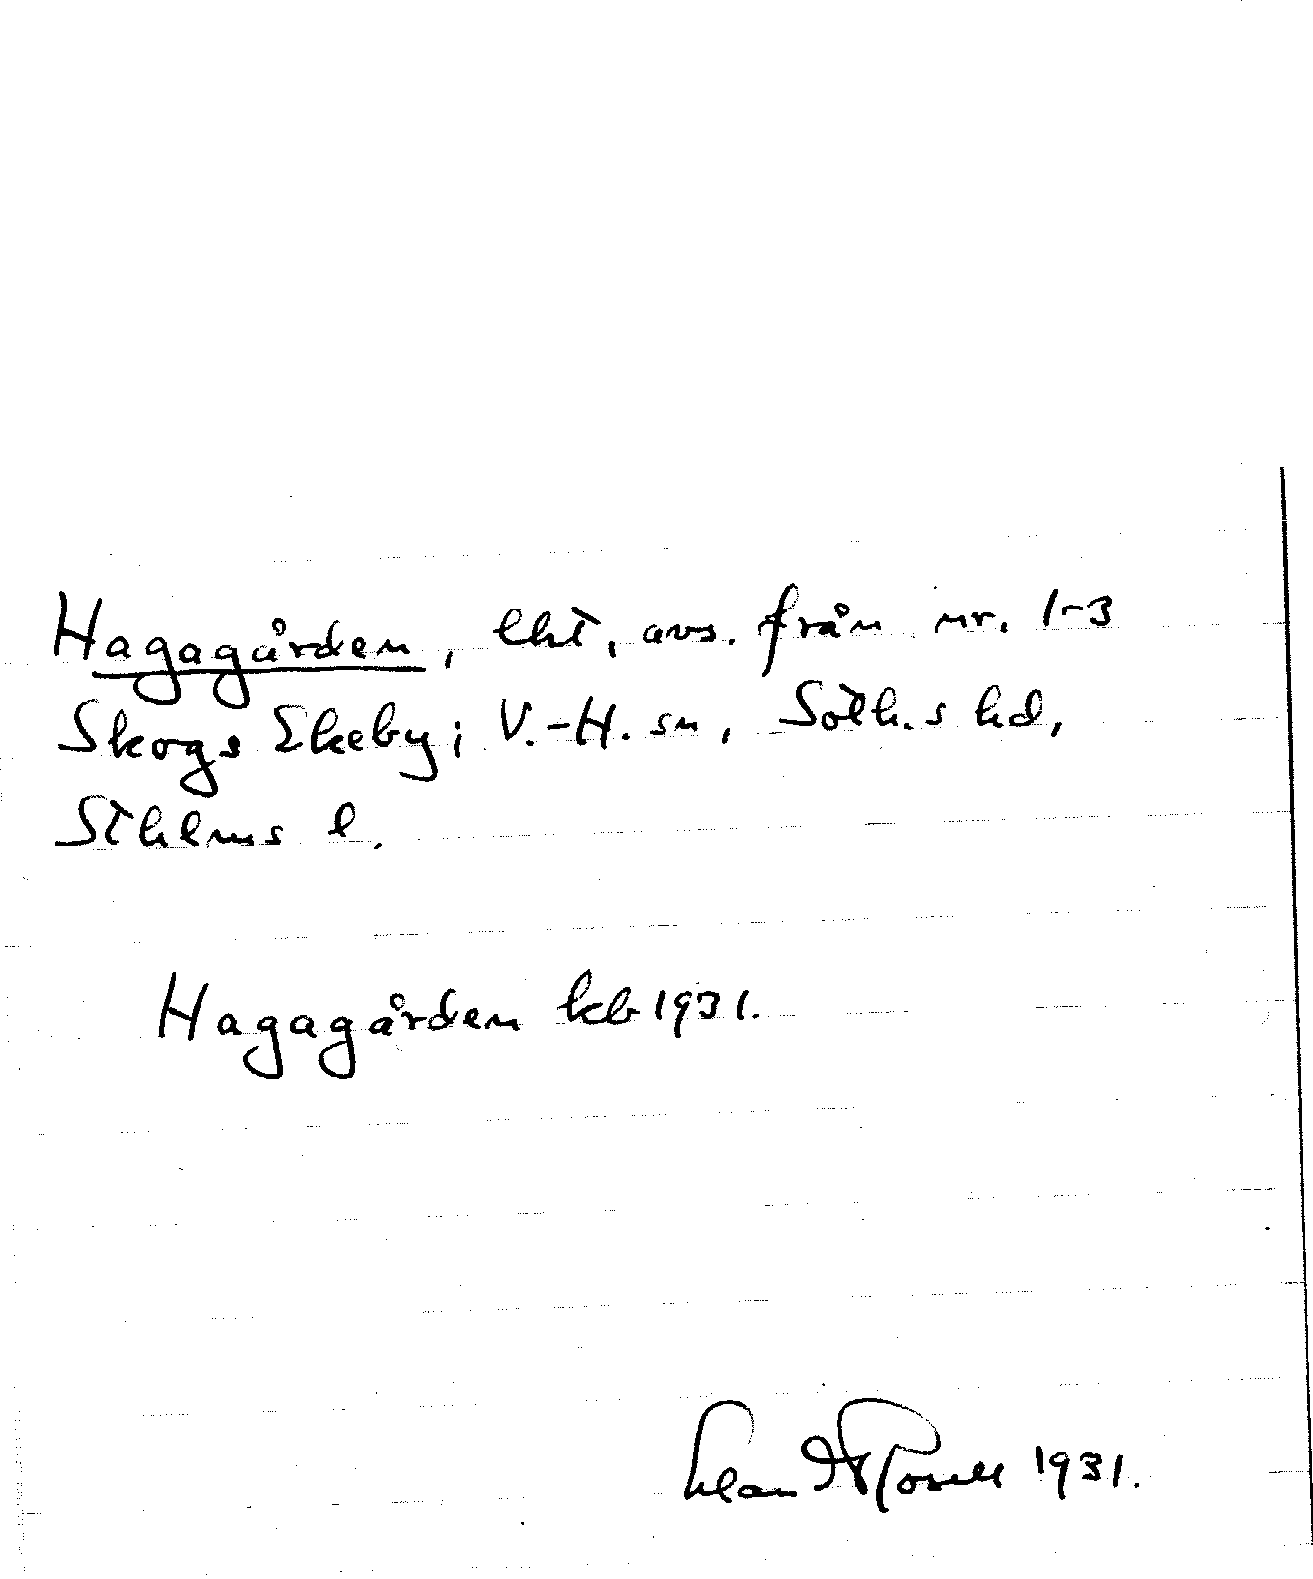 Hagagården, lht, avs. från nr. 1-3
Skogs Ekeby; V.-H. sn, Soth.s hd,
Sthlms l.
Hagagården kb 1931.
1931.